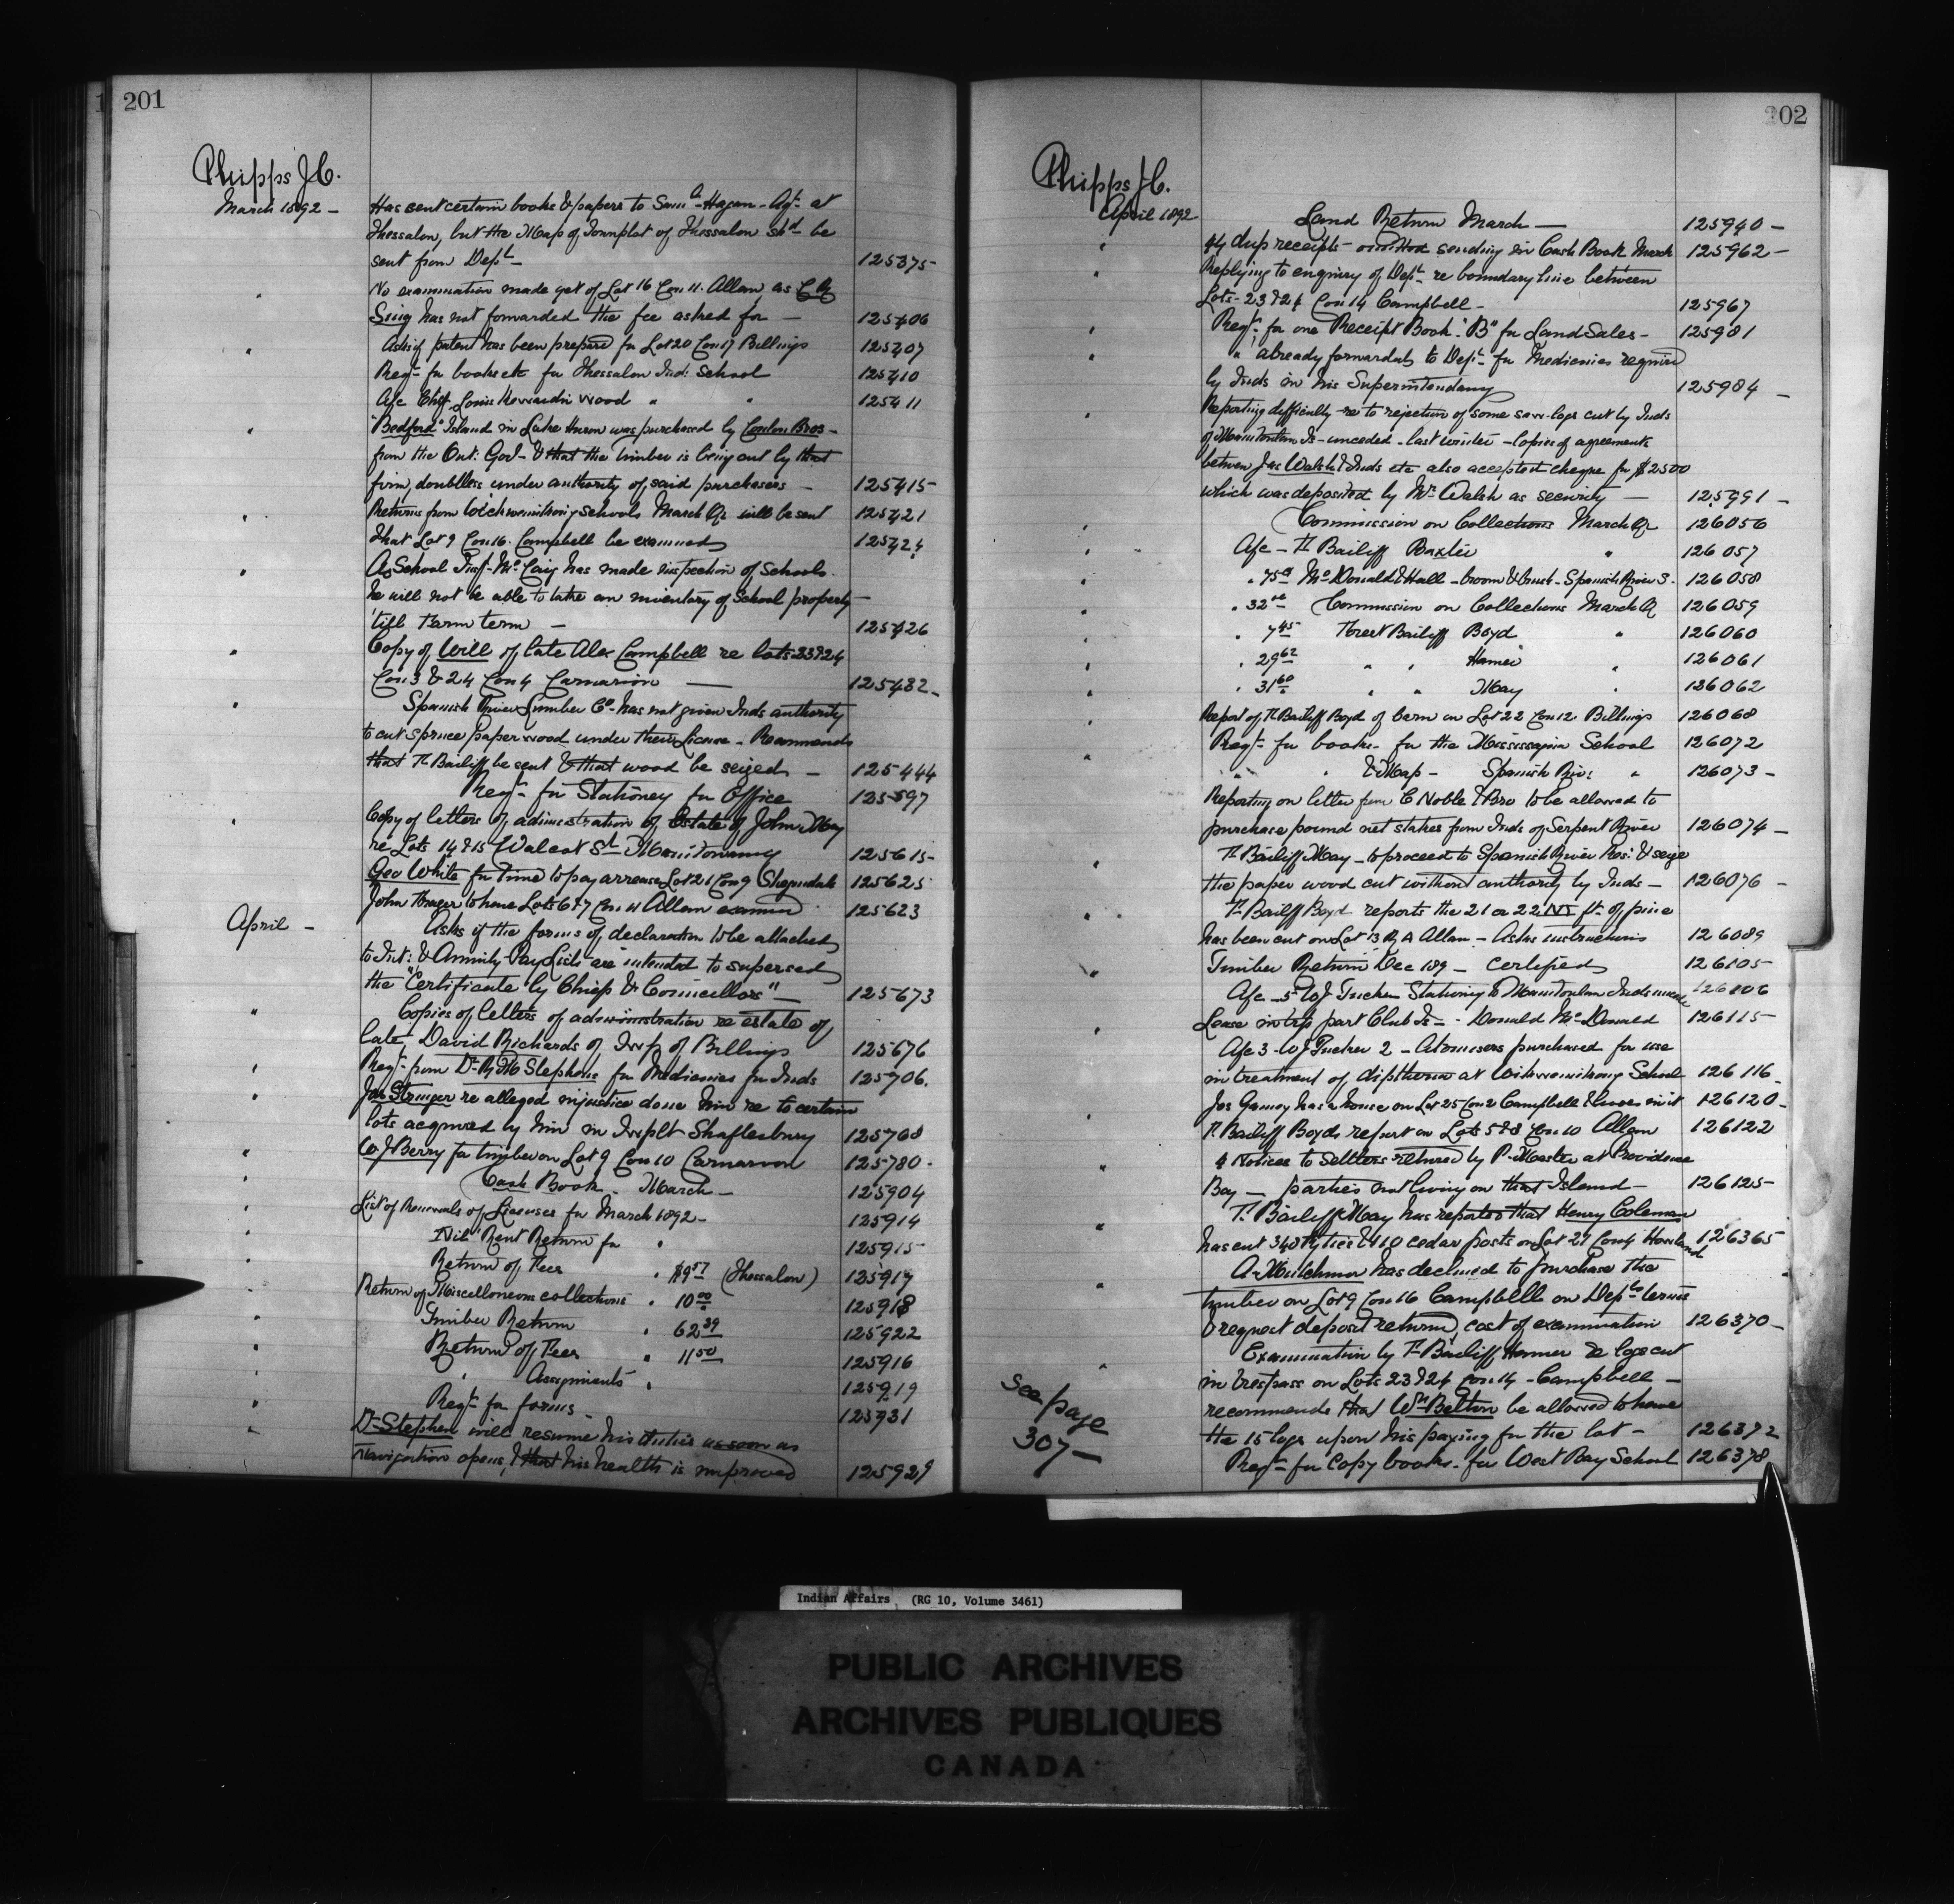 201
Phipps J.C.
March 1892 - Has sent certain books & papers to Saml Hagan - Agt. at
Thessalon, but the Map of Townplot of Thessalon shd be
sent from Dept - 125375
" No examination made yet of Lot 16 Con 11. Allan, as
Sing has not forwarded the fee asked for - 125406
" Asks if patent has been prepared for Lot 20 Con 17 Billings 125407
Reqn for books etc for Thessalon Ind: School 125410
A/c Chf. Louis wood " " 125411
" "Bedford" Island in Lake Huron was purchased by Conlon Bros -
from the Ont: Govt - & that the timber is being cut by that
firm, doubtless under authority of said purchasers - 125415
" Returns from Wickwemikong Schools March Qr will be sent 125421
That Lot 9 Con 16. Campbell be examined 125424
" As School Insp. McCaig has made inspection of Schools.
he will not be able to take an inventory of School property -
'till term - 125426
" Copy of Will of late Alex Campbell re lots 23 & 24
Con 3 & 24 Con 4 Carnarvon - 125432
" Spanish River Lumber Co. has not given Inds authority
to cut spruce paper wood under their License - Recommends
that T. Bailiff be sent & that wood be seized - 125444
Reqn for Stationery for Office 125597
" Copy of letters of administration of Estate of John May
re Lots 14 & 15 Walcot St. Manitowaning 125615
Geo White for time to pay arrears Lot 21 Con 9 Sheguiandah 125625
John to have Lots 6 & 7 Con 11 Allan examined 125623
April - Asks if the forms of declaration to be attached
to Int: & Annuity Pay Lists are intended to supersede
the "Certificate by Chiefs & Councillors" - 125673
" Copies of letters of administration re estate of
late David Richards of Twp of Billings 125676
" Reqn from Dr. R M Stephens for Medicines for Inds 125706.
" Jas Stringer re alleged injustice done him re to certain
lots acquired by him in Twplt Shaftesbury 125768
" W J Berry for timber on Lot 9 Con 10 Carnarvon 125780.
" Cash Book. March - 125904
" List of Renewals of Licenses for March 1892 - 125914
" Nil Rent Return for " 125915
" Return of Fees " $9.57 (Thessalon) 125917
Return of Miscellaneous collections " 10.00 125918
" Timber Return " 62.39 125922
" Return of Fees " 11.50 125916
" " Assignments " 125919
" Reqn for forms - 125931
" Dr Stephen will resume his duties as soon as
navigation opens, & that his health is improved 125929
202
Phipps J.C.
April 1892 Land Return March - 125940 -
" 44 dup receipts - omitted sending in Cash Book March 125962 -
" Replying to enquiry of Dept re boundary line between
Lots - 23 & 24 Con 14 Campbell - 125967
" Reqn for one Receipt Book "B" for Land Sales - 125981
" " already forwarded to Dept for Medicines required
by Inds in his Superintendency 125984 -
" Reporting difficulty re to rejection of some saw-logs cut by Inds
of Manitoulin Is - unceded - last winter - Copies of agreements
between Jas Walsh & Inds etc also accepted cheque for $2500
which was deposited by Mr Walsh as security - 125991 -
" Commission on Collections March Qr 126056
" A/c - T. Bailiff Baxter " 126057
" " 75c McDonald & Hall - broom & brush - Spanish River S. 126058
" " 32 Commission on Collections March Qr 126059
" " 7.45 Forest Bailiff Boyd " 126060
" " 29.62 " " " 126061
" " 31.60 " " May " 126062
" Report of T. Bailiff Boyd of barn on Lot 22 Con 12. Billings 126068
" Reqn for books - for the Mississagua School 126072
" " " & Map - Spanish Riv: " 126073 -
Reporting on letter from C Noble & Bro to be allowed to
purchase pound net stakes from Inds of Serpent River 126074 -
" T. Bailiff May - to proceed to Spanish River Res: & seize
the paper wood cut without authority by Inds - 126076 -
" T. Bailiff Boyd reports the 21 or 22 M ft. of pine
has been cut on Lot 13 R A Allan - Asks instructions 126089
" Timber Return Dec 189 - certified 126105
A/c - 5 W J Tucker Stationery to Manitoulin Inds 126106
" Lease in trip part Club Is - Donald McDonald 126115
A/c 3 - W J Tucker 2 - Atomisers purchased for use
in treatment of diptheria at Wikwemikong School 126116 -
" Jos has a house on Lot 25 Con 2 Campbell & lives in it 126120 -
T. Bailiff Boyds report on Lots 5 & 8 Con 10 Allan 126122
" 4 Notices to Settlers returned by P. Master at Providence
Bay - parties not living on that Island - 126125
" T. Bailiff May has reported that Henry Coleman
has cut 340 Ry ties & 110 cedar posts on Lot 27 Con 4 Howland 126365
" A. Mutchmor has declined to purchase the
timber on Lot 9 Con 16 Campbell on Depts terms
& request deposit returned, cost of examination 126370 -
" Examination by T. Bailiff re logs cut
in trespass on Lots 23 & 24 Con 14 - Campbell -
recommends that Wm Belton be allowed to have
the 15 logs upon his paying for the lot - 126372
Reqn for copy books - for West Bay School 126378
see page
307 -
Indian Affairs (RG 10, Volume 3461)
PUBLIC ARCHIVES
ARCHIVES PUBLIQUES
CANADA